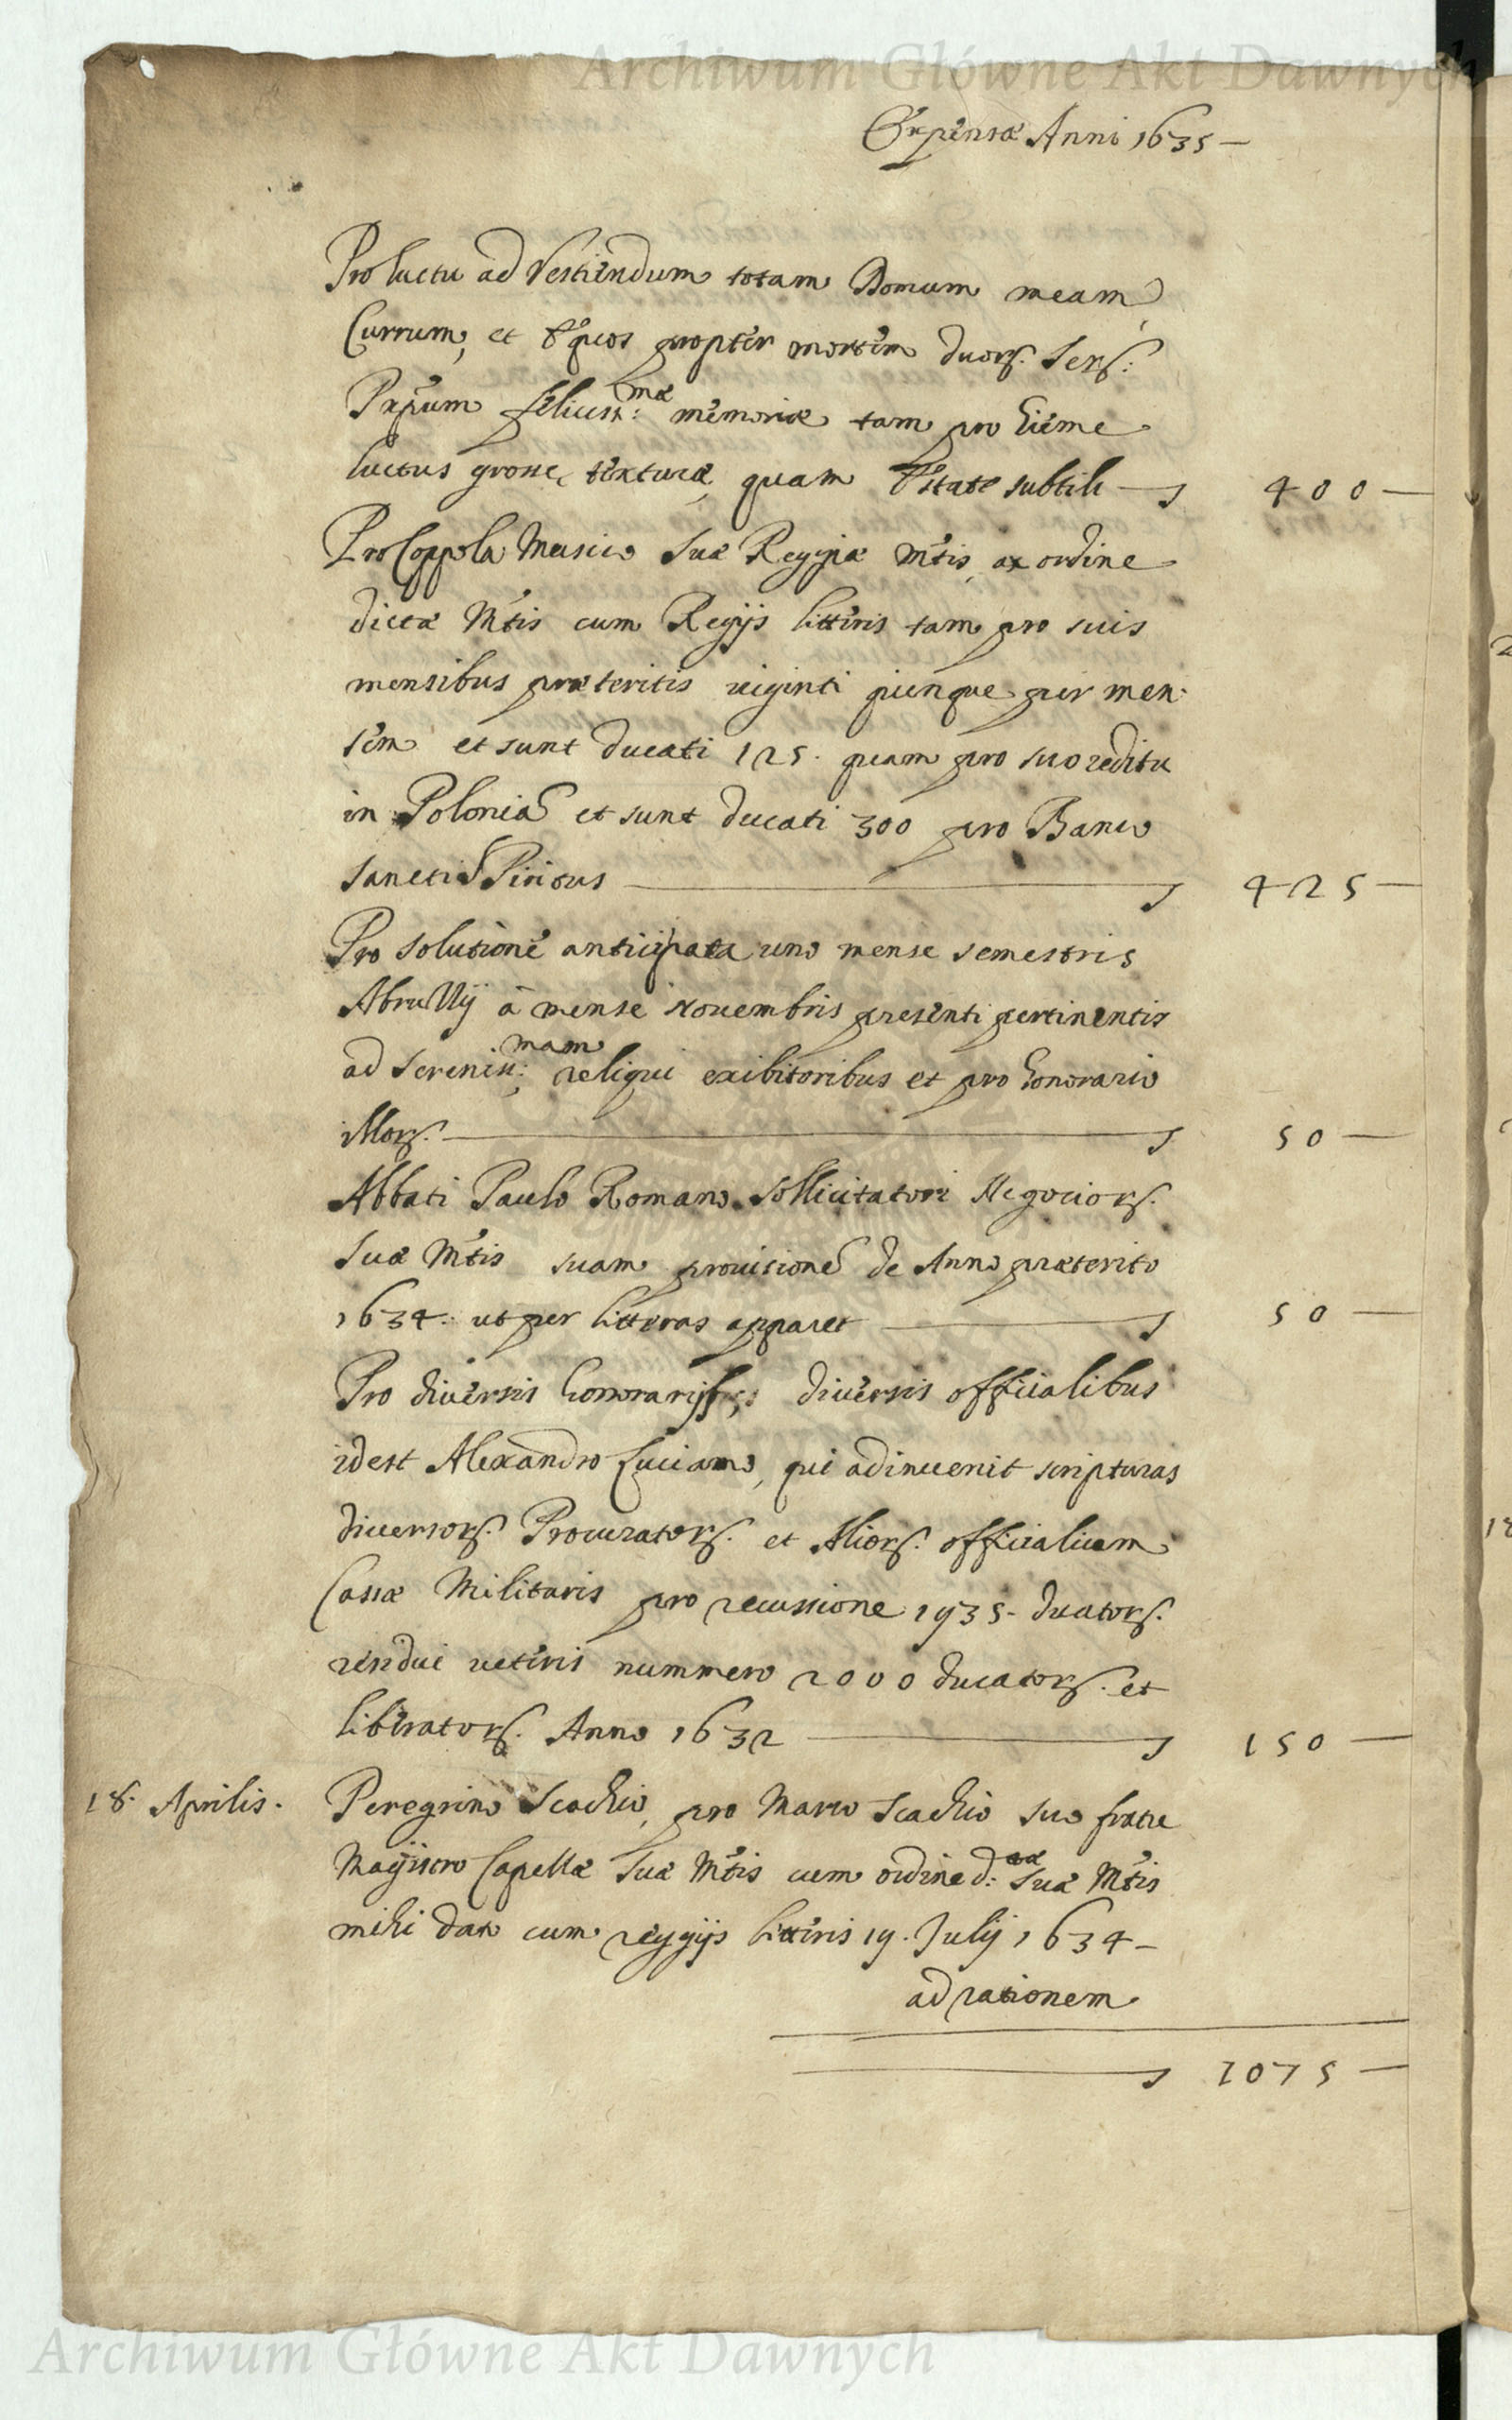 Archiwum Główne Akt Dawnych
Expensæ Anni 1635 —
Pro luctu ad Vestiendum totam Domum meam,
Currum, et Equos propter mortem duor. Ser.:
Prpum feliciss:mæ memoriæ tam pro hieme
luctus grosse texturæ, quam Estate subtili — 400 —
Pro Coppola Musico Suæ Reggiæ Mtis, ex ordine
dictæ Mtis cum Regijs litteris tam pro suis
mensibus præteritis viginti quinque per men-
sem et sunt ducati 125. quam pro suo reditu
in Polonia et sunt ducati 300 pro Banco
Sancti Spiritus — 425 —
Pro solutione anticipata uno mense semestris
Abrutij à mense Novembris presenti pertinentis
ad Sereniss:mam reliqui exibitoribus et pro honorario
illor. — 50 —
Abbati Paulo Romano sollicitatori Negocior.
Suæ Mtis suam provisione de Anno præterito
1634. ut per litteras apparet — 50 —
Pro diversis honorarijs; diversis officialibus
idest Alexandro Luciano, qui adinvenit scripturas
diversor. Procurator. et Alior. officialium
Cassæ Militaris pro recussione 1935. ducator.
residui veteris nummero 2000 ducator. et
liberator. Anno 1632 — 150 —
18. Aprilis. Peregrino Scachio, pro Marco Scachio suo fratre
Magistro Capellæ Suæ Mtis cum ordine d: Suæ Mtis
mihi dato cum reggijs litteris 19. Julij 1634 —
ad rationem
— 1075 —
Archiwum Główne Akt Dawnych